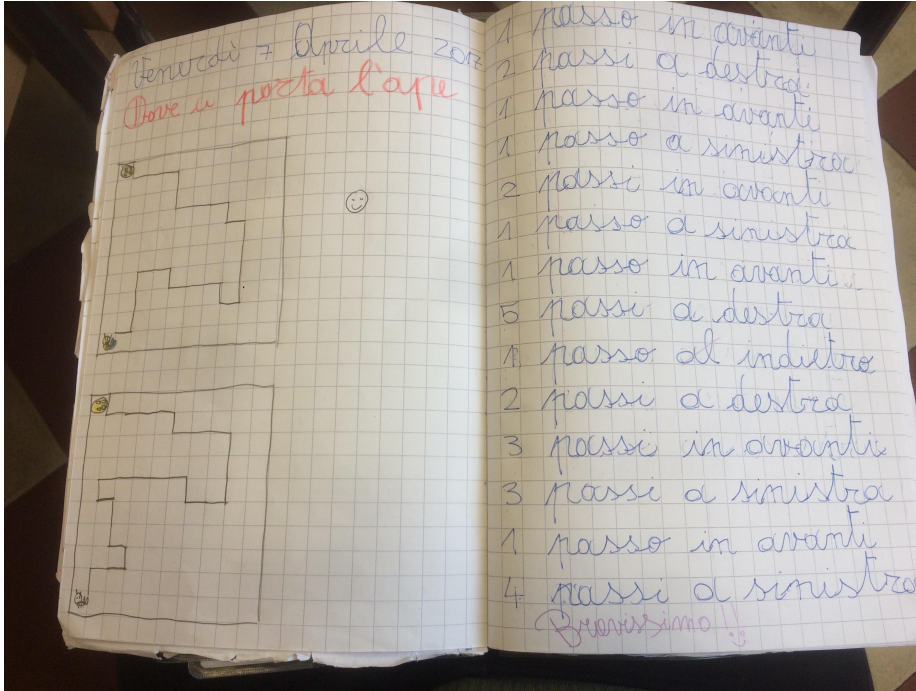 Venerdì 7 Aprile 2017
Dove ci porta l'ape
1 passo in avanti
2 passi a destra
1 passo in avanti
1 passo a sinistra
2 passi in avanti
1 passo a sinistra
1 passo in avanti
5 passi a destra
1 passo al indietro
2 passi a destra
3 passi in avanti
3 passi a sinistra
1 passo in avanti
4 passi a sinistra
Bravissimo!!